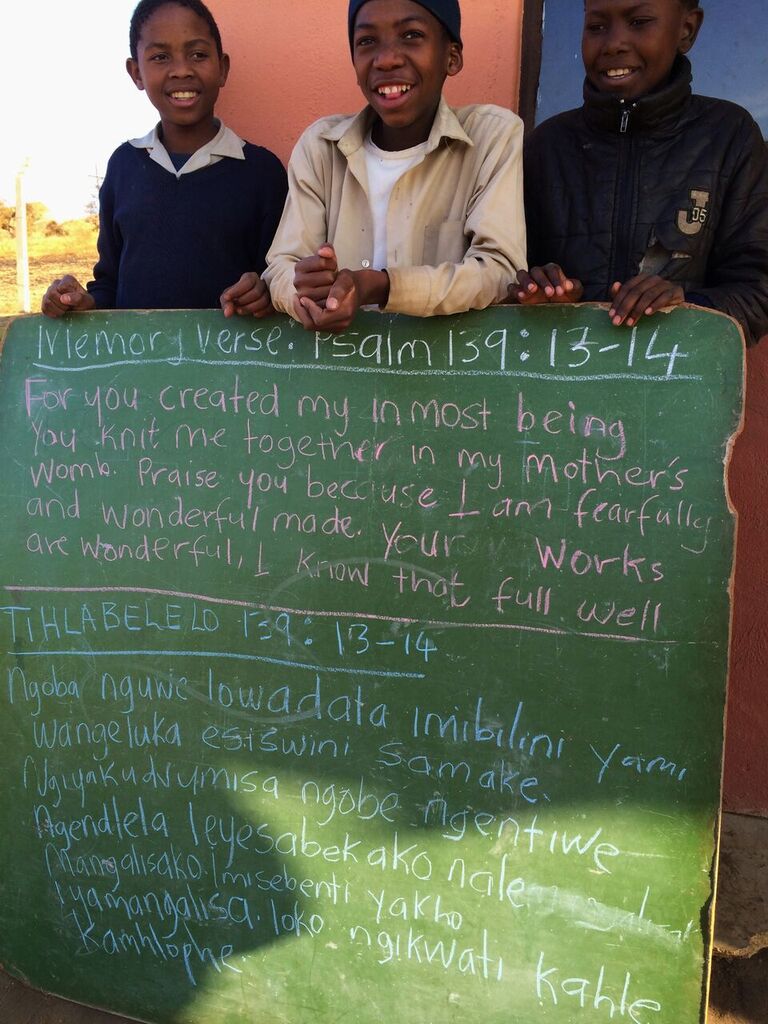 Memory Verse: Psalm 139:13-14
For you created my inmost being
You knit me together in my Mother's
womb. Praise you because I am fearfully
and wonderful made. Your Works
are wonderful, I know that full well
TIHLABELELO 139: 13-14
Ngoba nguwe lowadala imibilini yami
wangeluka esiswini samake.
Ngiyakudvumisa ngobe ngentiwe
Ngendlela leyesabekako nale
Mangalisako. Imisebenti yakho
Iyamangalisa. loko ngikwati kahle
Kamhlophe.
J
05